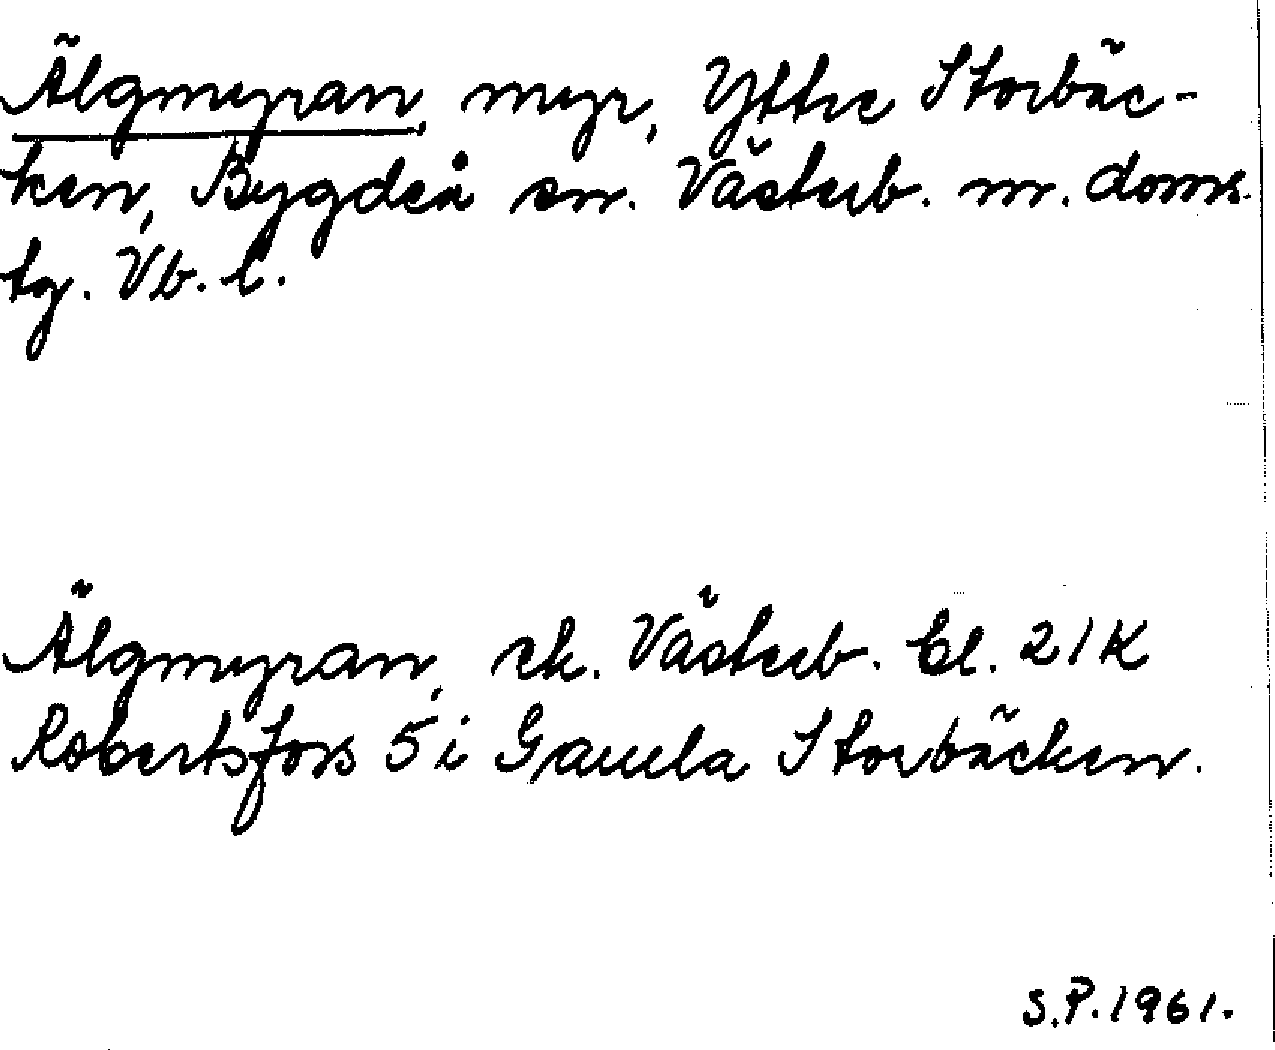 Älgmyran, myr, Yttre Storbäc-
ken, Bygdeå sn. Västerb. m. doms.
tg. Vb. l.
Älgmyran, ek. Västerb. bl. 21K
Robertsfors 5 i Gamla Storbäcken.
S.P. 1961.